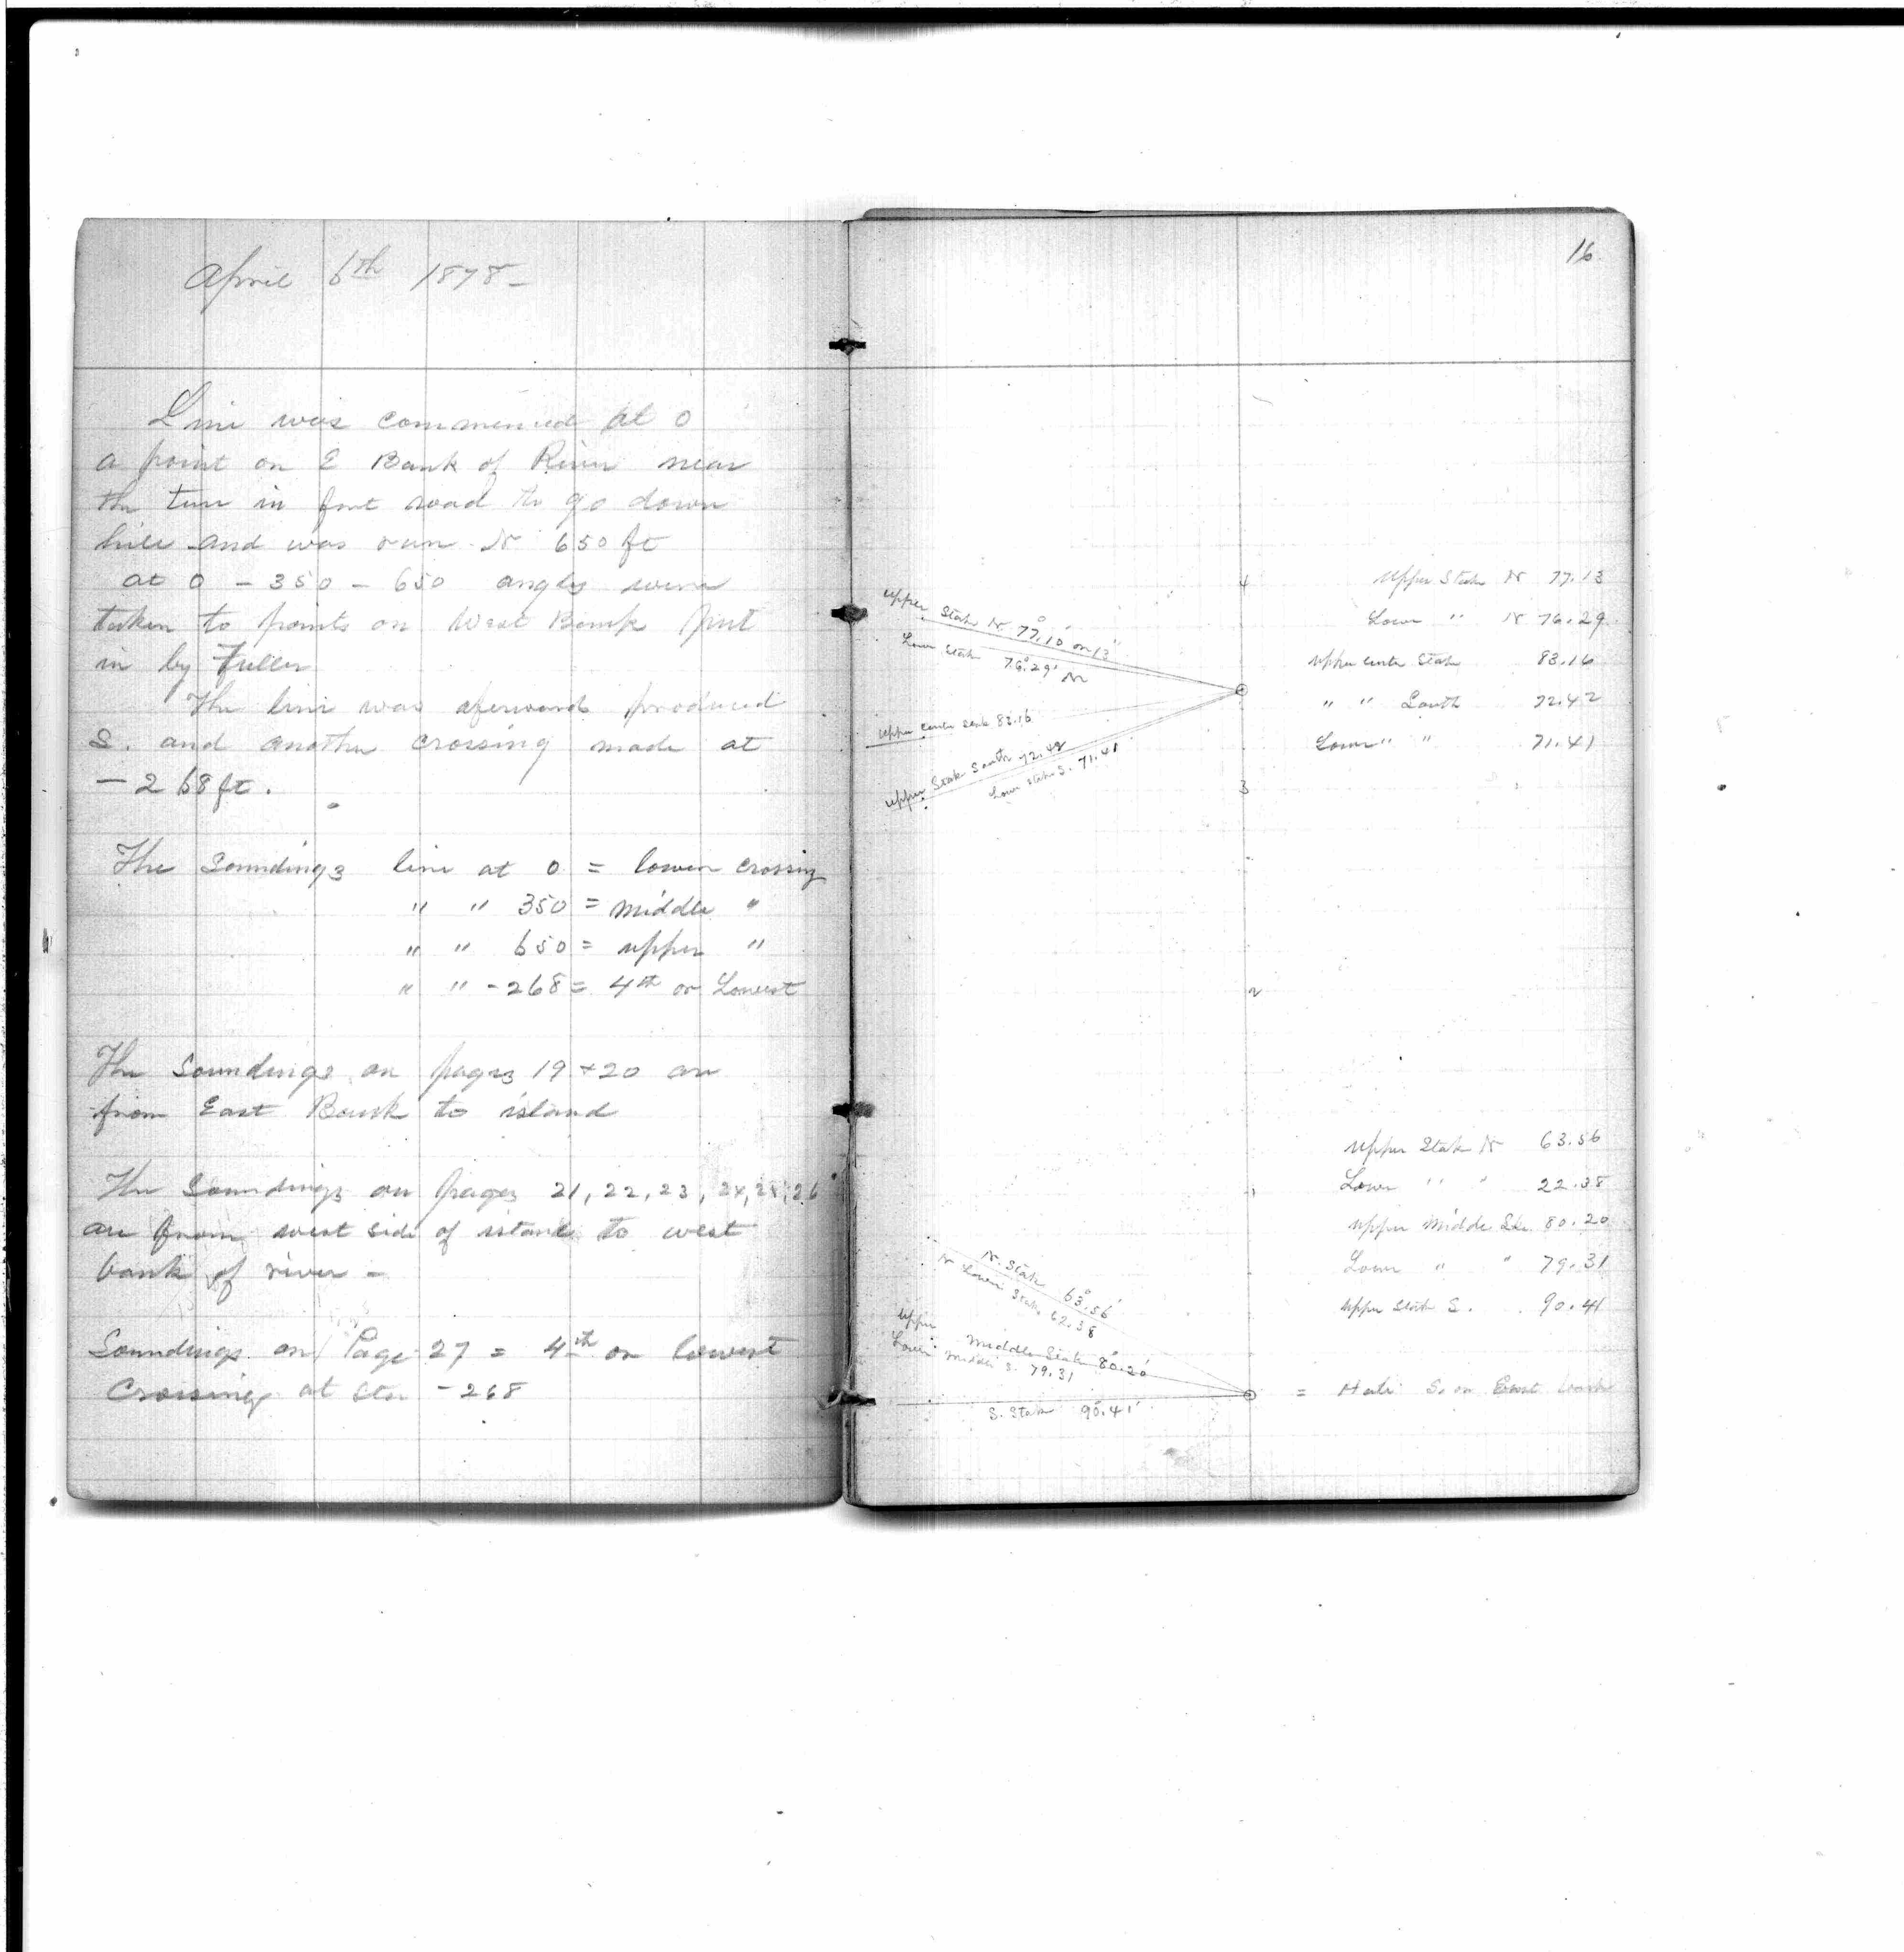 April 6th 1878-
Line was commenced at 0
a point on E Bank of River near
the turn in foot road to go down
hill and was run N 650 ft
at 0 - 350 - 650 angles were
taken to points on West Bank put
in by Fuller
The line was aferwards produced
S. and another crossing made at
-268 ft.
The Soundings line at 0 = lower crossing
" " 350 = middle "
" " 650 = upper "
" " -268 = 4th or Lowest
The Soundings on pages 19 + 20 are
from East Bank to island
The Soundings on pages 21, 22, 23, 24, 25, 26
are from west side of island to west
bank of river -
Soundings on Page 27 = 4th or lowest
Crossing at Sta -268
16
4
Upper Stake N 77.13
Lower " N 76.29
Upper center Stake 83.16
" " South 72.42
Lower " " 71.41
Upper Stake N. 77°.10' or 13'
Lower Stake 76°.29' N
Upper center Stake 83.16
Upper Stake South 72.42
Lower Stake S. 71.41
3
2
1
Upper Stake N 63.56
Lower " " 22.38
Upper Middle Stk. 80.20
Lower " " 79.31
Upper Stake S. 90.41
N. Stake 63°.56'
N Lower Stake 62.38
Upper Middle Stake 80°.20'
Lower Middle S. 79.31
S. Stake 90°.41'
= S. on East bank